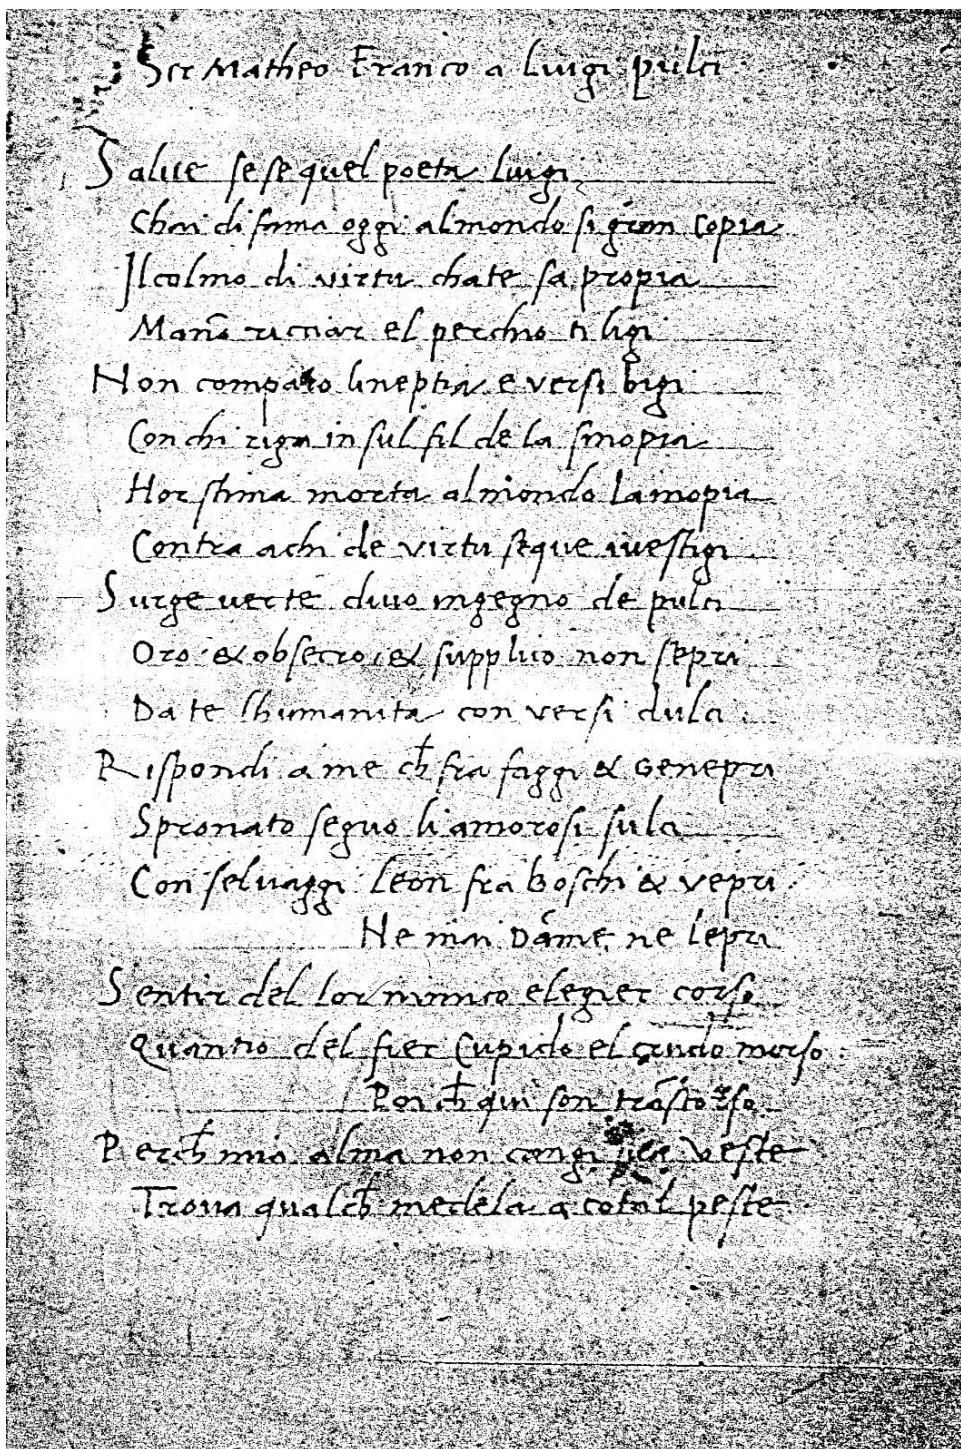 Ser Matheo Franco a Luigi pulci
Salue se se quel poeta luigi
Chai di fama oggi al mondo si gran copia
Il colmo di virtu cha te sa propia
Ma nō ricciar el perchio ti ligi
Non comparo lineptia e versi bigi
Con chi riga in sul fil de la sinopia
Hor stima morta al mondo la inopia
Contra a chi de virtu seque iuestigi
Surge uer te diuo ingegno de pulci
Oro & obsecro & supplico non sepri
Da te lhumanita con versi dulci
Rispondi a me cħ fra faggi & Genepri
Spronato seguo li amorosi sulci
Con seluaggi leon fra boschi & vepri
Ne mai Dāme ne lepri
Sentir del lor nimico elegier corso
Quantio del fier Cupido el crudo morso
Poi cħ qui son trāsto
Percħ mio alma non cangi veste
Troua qualcħ medela a cotal peste